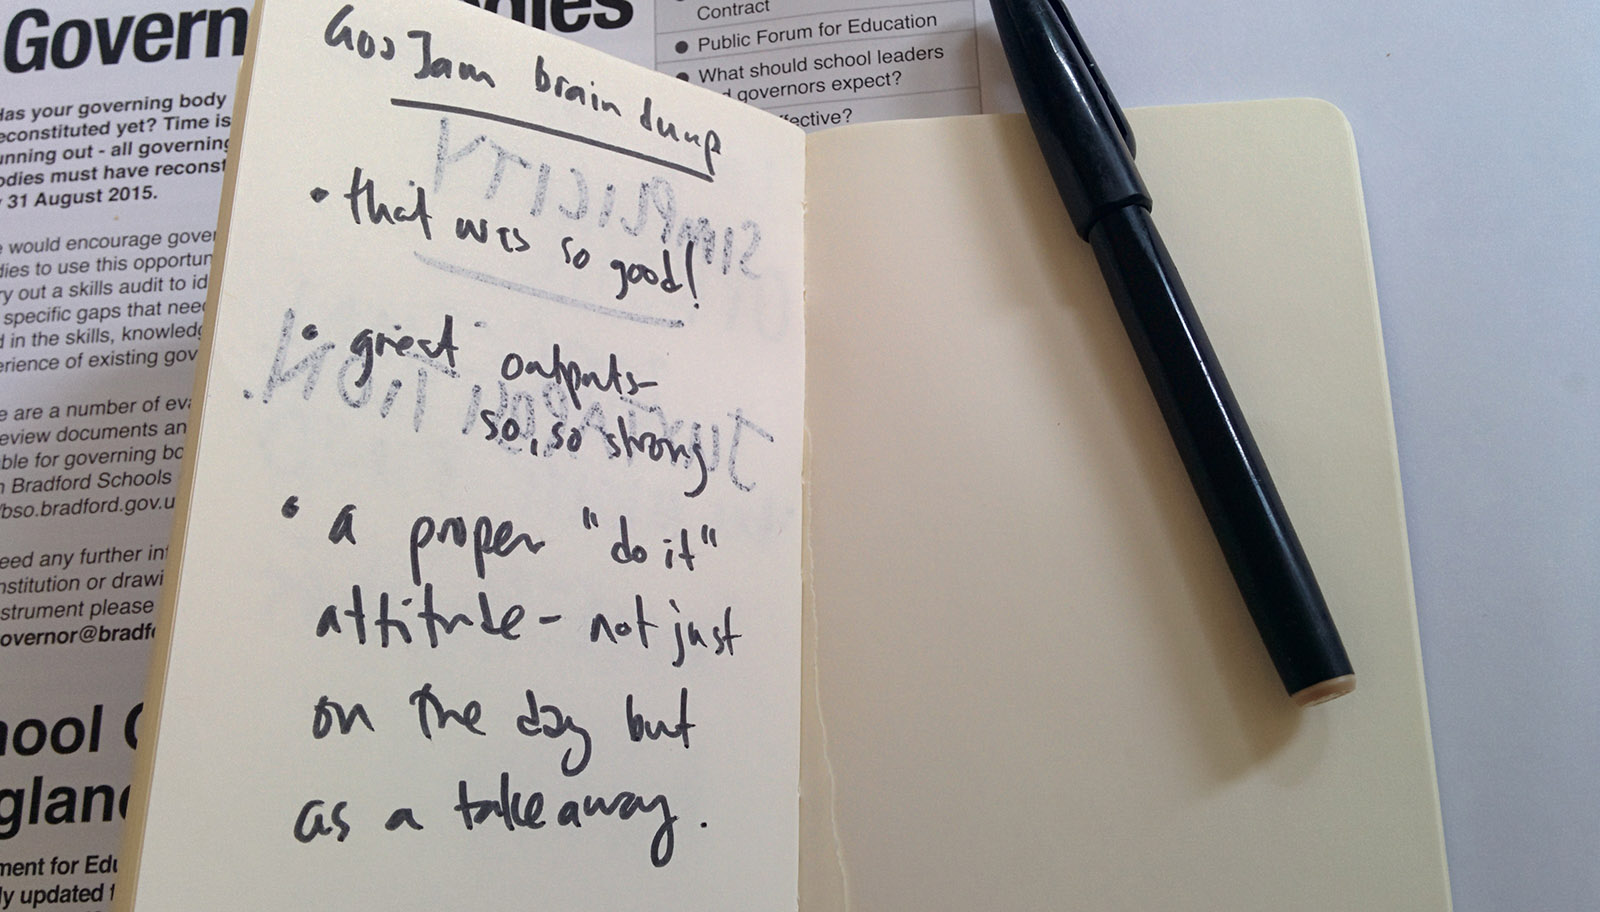 Govern
dies
Has your governing body
econstituted yet? Time is
unning out - all governing
odies must have reconst
31 August 2015.
would encourage gover
dies to use this opportun
ry out a skills audit to id
specific gaps that need
d in the skills, knowledg
erience of existing gov
e are a number of eva
eview documents an
ble for governing bo
n Bradford Schools
/bso.bradford.gov.u
eed any further inf
nstitution or drawi
strument please
overnor@bradfo
hool
gland
ment for Edu
ly updated
Contract
• Public Forum for Education
• What should school leaders
d governors expect?
ffective?
GovJam brain dump
• that was so good!
• great outputs-
so, so strong
• a proper "do it"
attitude - not just
on the day but
as a takeaway.
SIMPLICITY
JUXTAPOSITION.